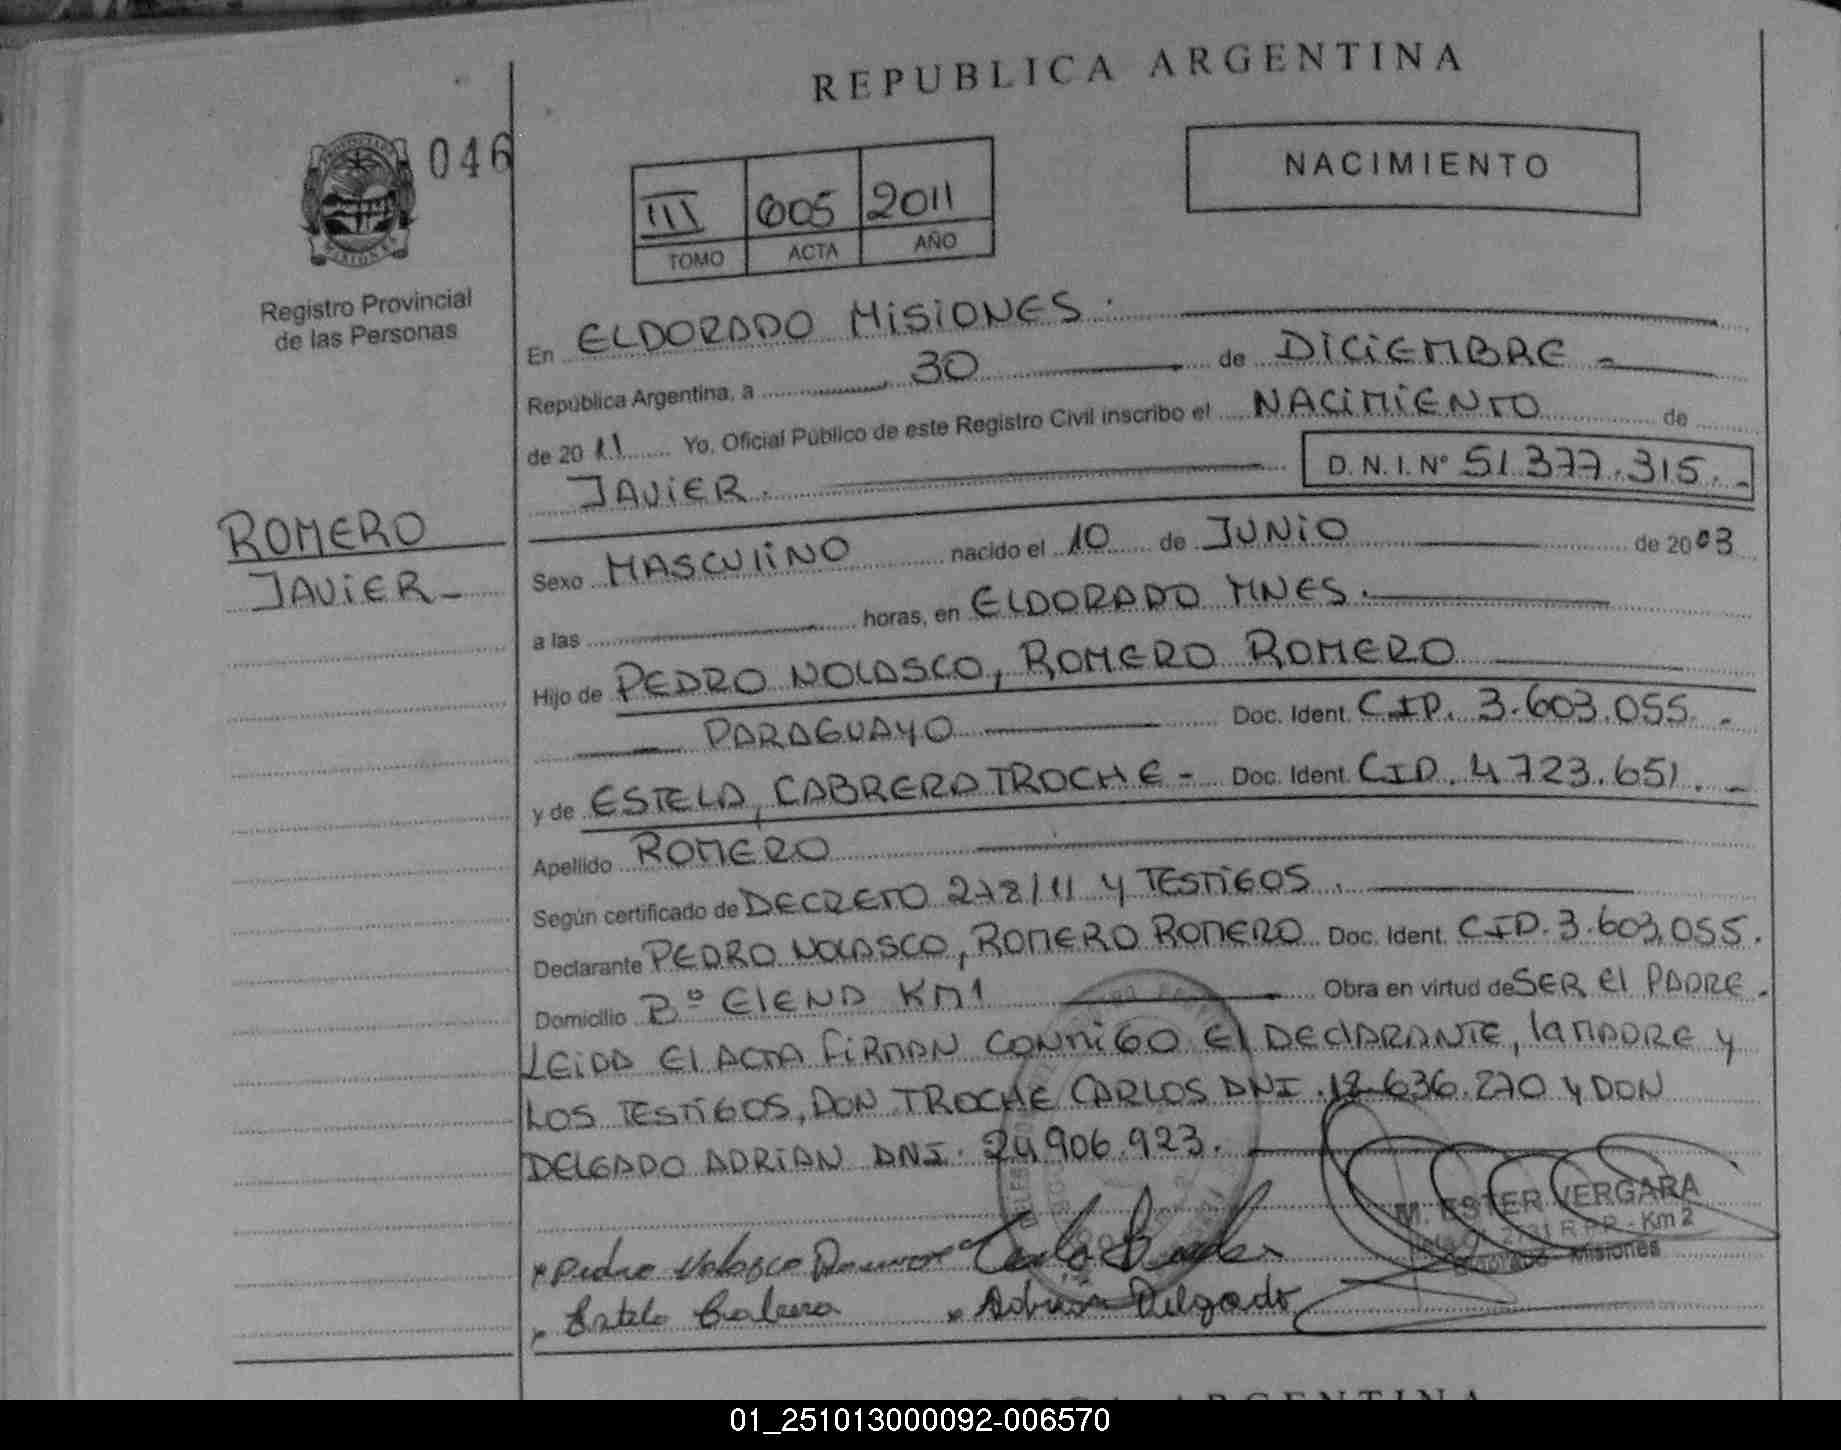 REPUBLICA ARGENTINA
046
NACIMIENTO
III 605 2011
TOMO ACTA AÑO
Registro Provincial
de las Personas
En ELDORADO MISIONES.
República Argentina, a 30 de DICIEMBRE
de 2011 Yo, Oficial Público de este Registro Civil inscribo el NACIMIENTO de
JAVIER. D. N. I. Nº 51.377.315.-
ROMERO
JAVIER-
Sexo MASCULINO nacido el 10 de JUNIO de 2003
a las horas, en ELDORADO MNES.
Hijo de PEDRO NOLASCO, ROMERO ROMERO
PARAGUAYO Doc. Ident. CIP. 3.603.055.-
y de ESTELA, CABRERA TROCHE - Doc. Ident. CID. 4723.651.-
Apellido ROMERO
Según certificado de DECRETO 278/11 Y TESTIGOS.
Declarante PEDRO NOLASCO, ROMERO ROMERO Doc. Ident. CID. 3.603.055.
Domicilio Bº ElENA KM1 Obra en virtud de SER El PADRE.
LEIDA El ACTA FIRMAN CONMIGO El DEClARANTE, la MADRE y
LOS TESTIGOS, DON TROCHE CARLOS DNI. 12.636.270 y DON
DELGADO ADRIAN DNI. 24.906.923.
M. ESTER VERGARA
2731 R.P.P. - Km 2
Eldorado - Misiones
Pedro Nolasco Romero
Estela Cabrera Adrian Delgado
ARGENTINA
01_251013000092-006570